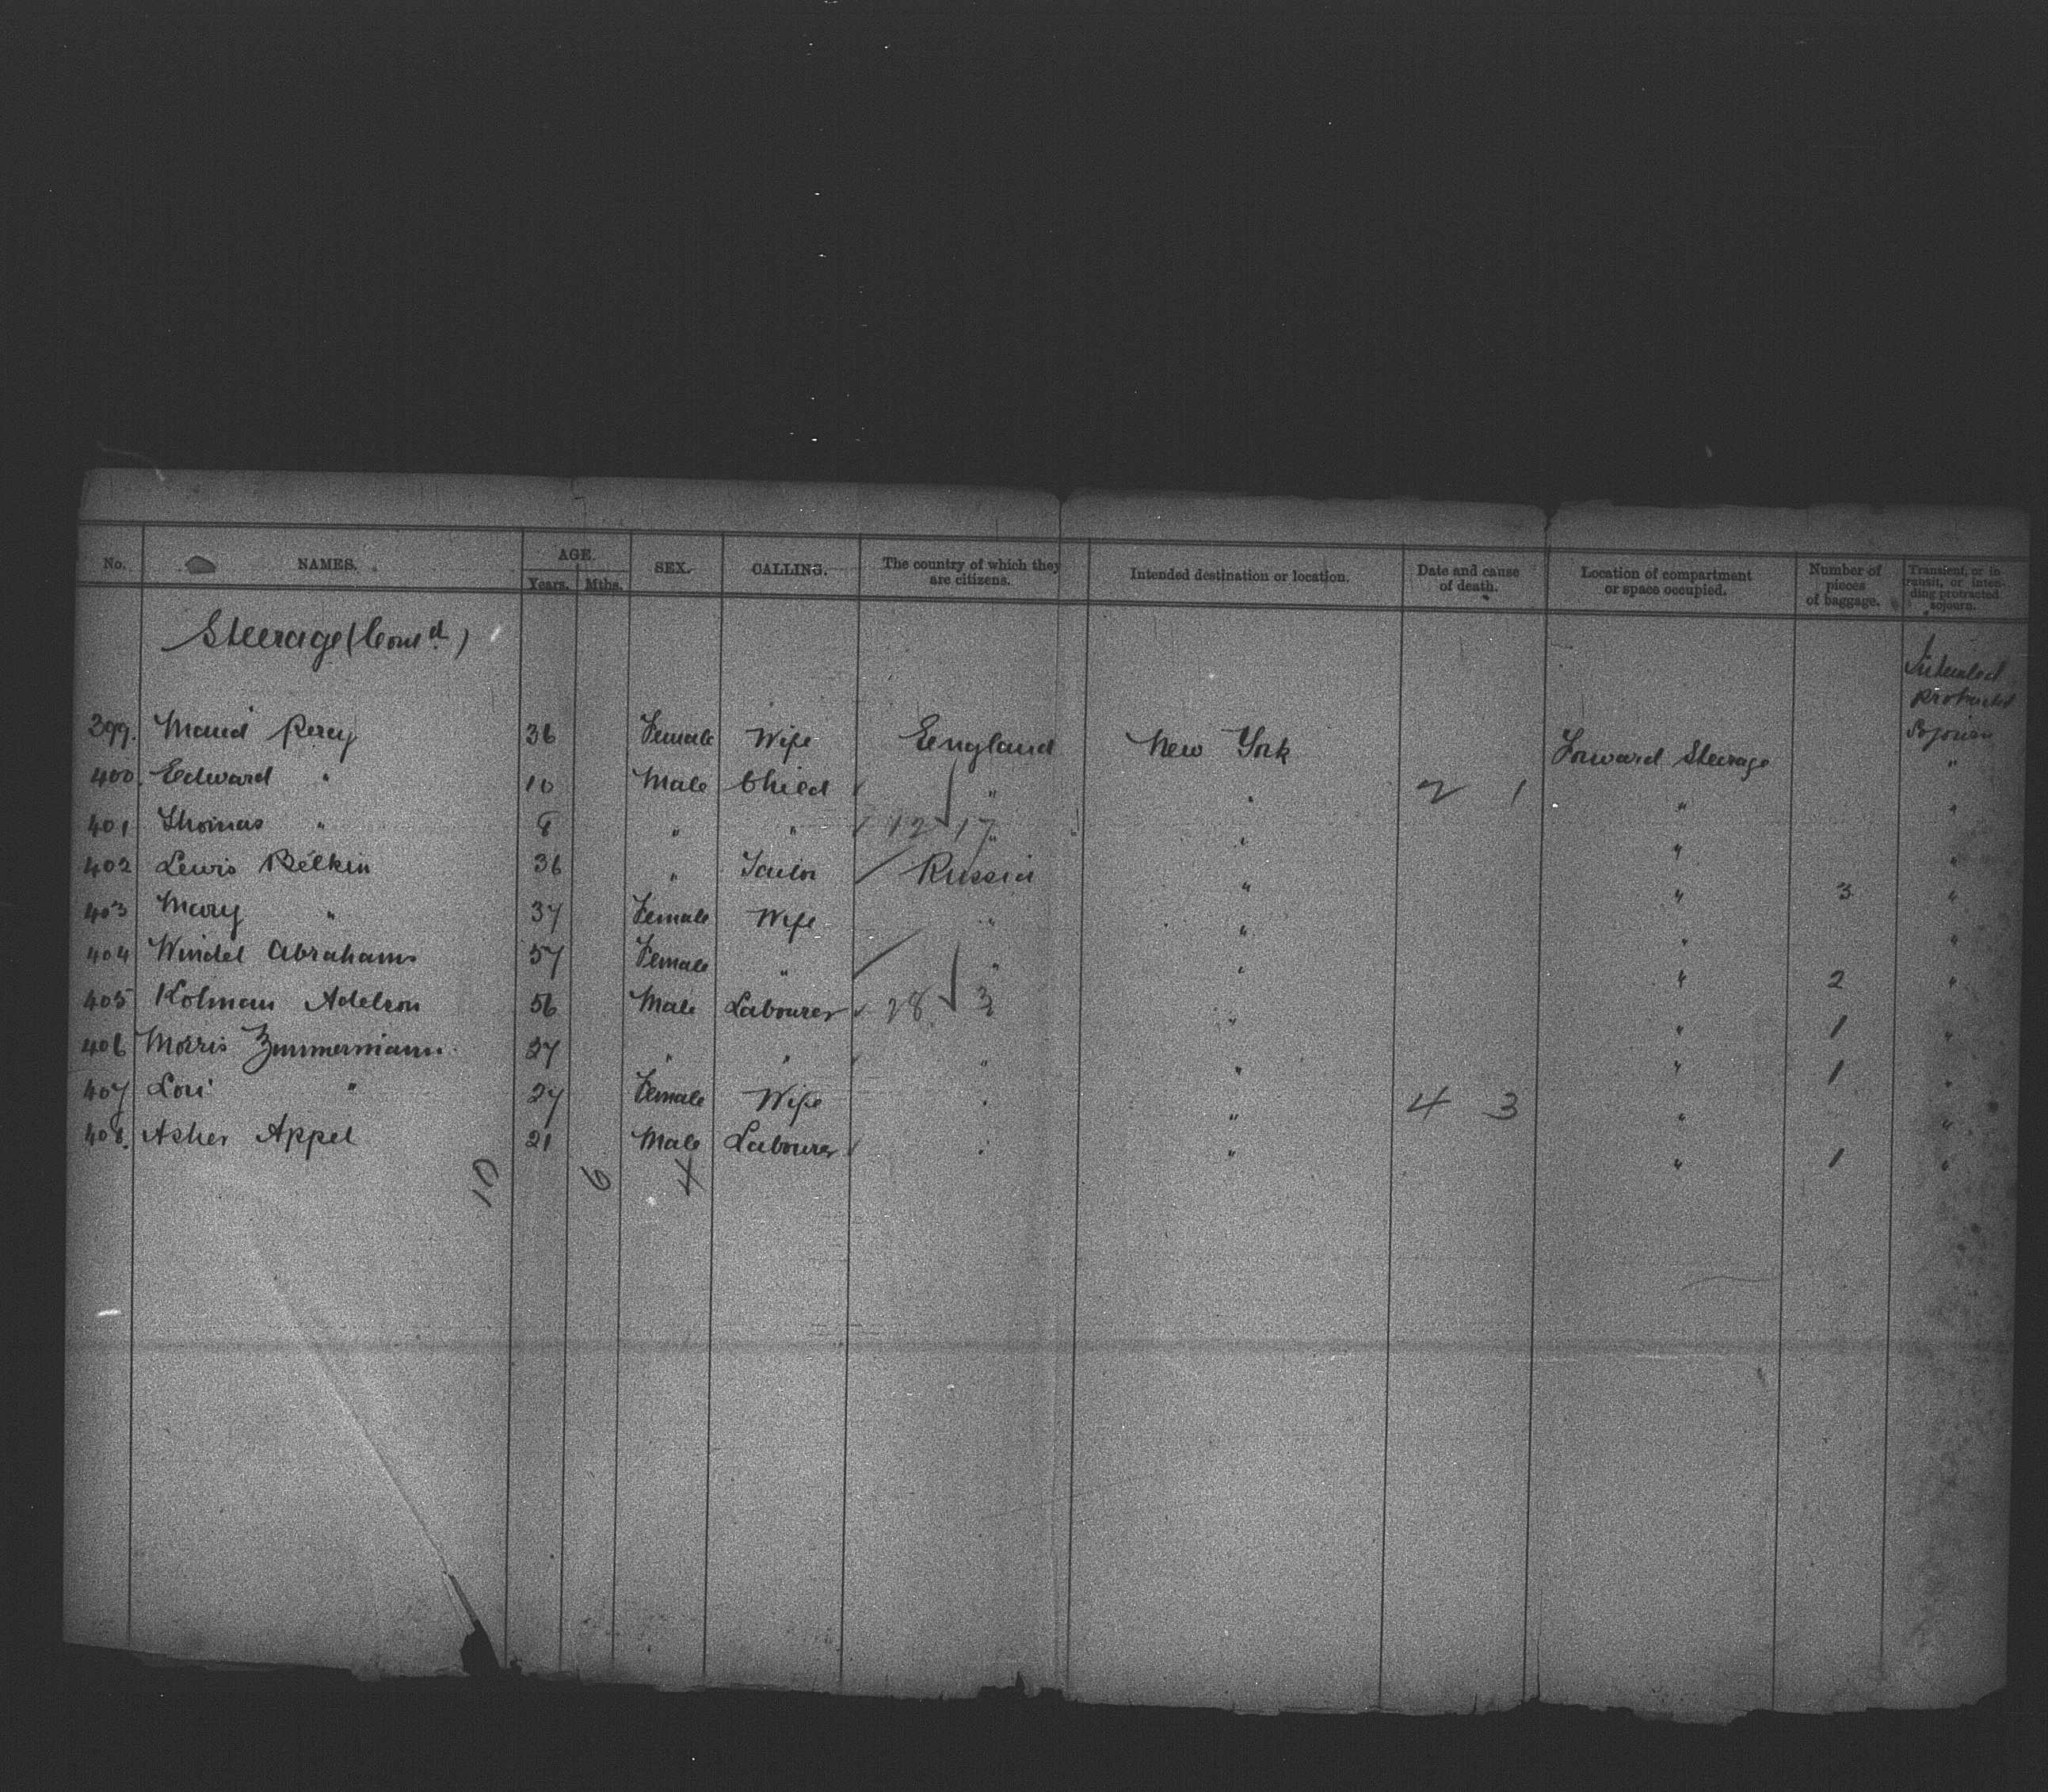 No. NAMES. AGE. Years. Mths. SEX. CALLING. The country of which they are citizens. Intended destination or location. Date and cause of death. Location of compartment or space occupied. Number of pieces of baggage. Transient, or in transit, or intending protracted sojourn.
Steerage (Contd)
Intended
protracted
Sojourn
399. Maud Percy 36 Female Wife England New York Forward Steerage "
400. Edward " 10 Male Child " " 2 1 " "
401 Thomas " 8 " " 12 17 " " " "
402 Lewis Belkin 36 " Tailor Russia " " 3 "
403 Mary " 37 Female Wife " " " "
404 Windel Abrahams 57 Female " " " " 2 "
405 Kolman Adelson 56 Male Labourer 28 3 " " " 1 "
406 Morris Zimmermann 27 " " " " " 1 "
407 " 27 Female Wife " " 4 3 " "
408. Asher Appel 21 Male Labourer " " " 1 "
10 6 4